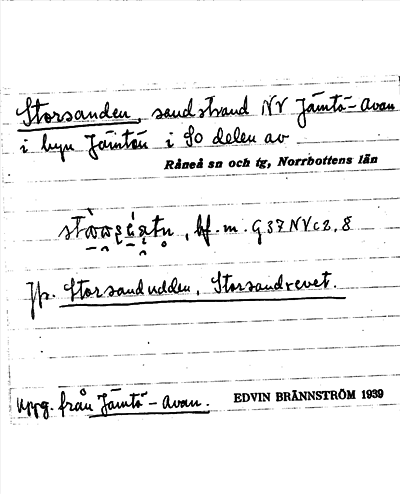 Storsanden, sandstrand NV Jämtö-Avan
i byn Jämtön i SO delen av
Råneå sn och tg, Norrbottens län
bf. m. G 37 NV c 2, 8
Jfr. Storsandudden, Storsandrevet.
Uppg. från Jämtö-Avan.
EDVIN BRÄNNSTRÖM 1939